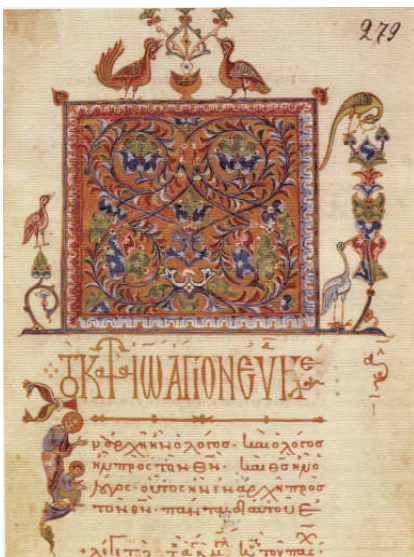 279
ΤΟ ΚΑΤ ΙΩ ΑΓΙΟΝ ΕΥ
Εν ἀρχῆ ἦν ὁ λόγος· καὶ ὁ λόγος
ἦν πρὸς τὸν θν· καὶ θς ἦν ὁ
λόγος· οὗτος ἦν ἐν ἀρχῆ πρὸς
τὸν θν· πάντα δι αὐτοῦ ἐ